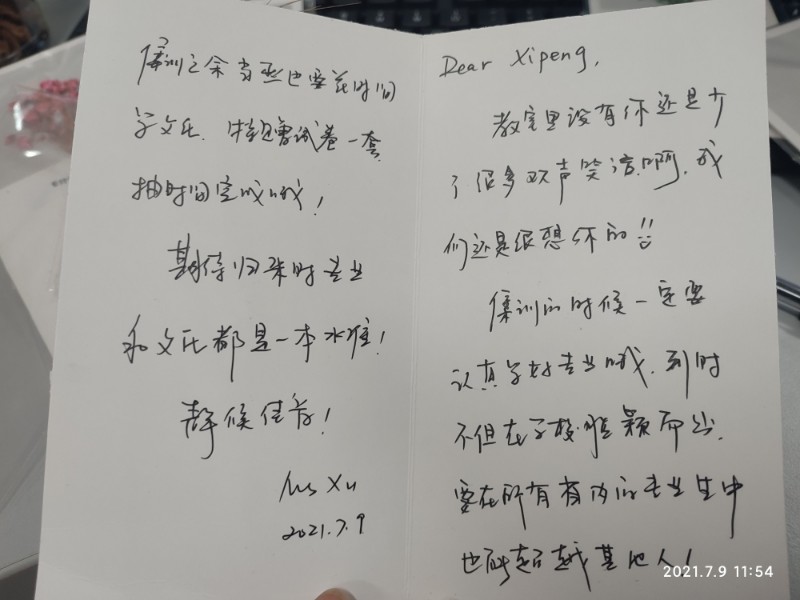 Dear Xipeng,
教室里没有你还是少
了很多欢声笑语啊,我
们还是很想你的!!
集训的时候一定要
认真学好专业哦,到时
不但在学校脱颖而出,
要在所有省内的专业生中
也能超越其他人!
集训之余当然也要花时间
学文化,特赠试卷一套,
抽时间完成哦!
期待归来时专业
和文化都是一本水准!
静候佳音!
Ms Xu
2021.7.9
2021.7.9 11:54